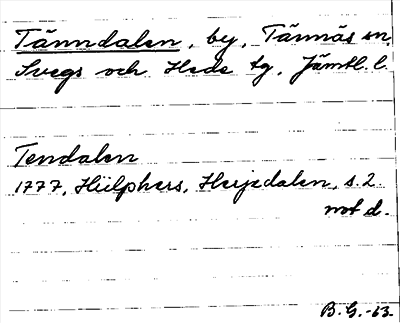 Tänndalen, by, Tännäs sn,
Svegs och Hede tg, Jämtl. l.
Tendalen
1777, Hülphers, Herjedalen, s. 2.
not d.
B. G. -63.